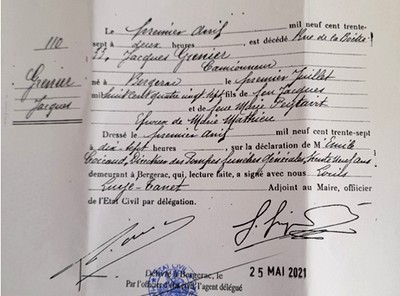 Le premier avril mil neuf cent trente-
110
sept à deux heures , est décédé Rue de la Boétie
22, Jacques Grenier
Camionneur
Grenier
Jacques
né à Bergerac le premier Juillet
mil huit cent quatre vingt sept fils de feu Jacques
et de feue Marie
Époux de Marie Mathieu
Dressé le premier avril mil neuf cent trente-sept
à dix-sept heures , sur la déclaration de M Emile
Directeur des Pompes funèbres Générales, trente neuf ans
demeurant à Bergerac, qui, lecture faite, a signé avec nous Louis
Adjoint au Maire, officier
de l'Etat Civil par délégation.
Délivré à Bergerac, le 25 MAI 2021
Par l'officier d'état civil l'agent délégué